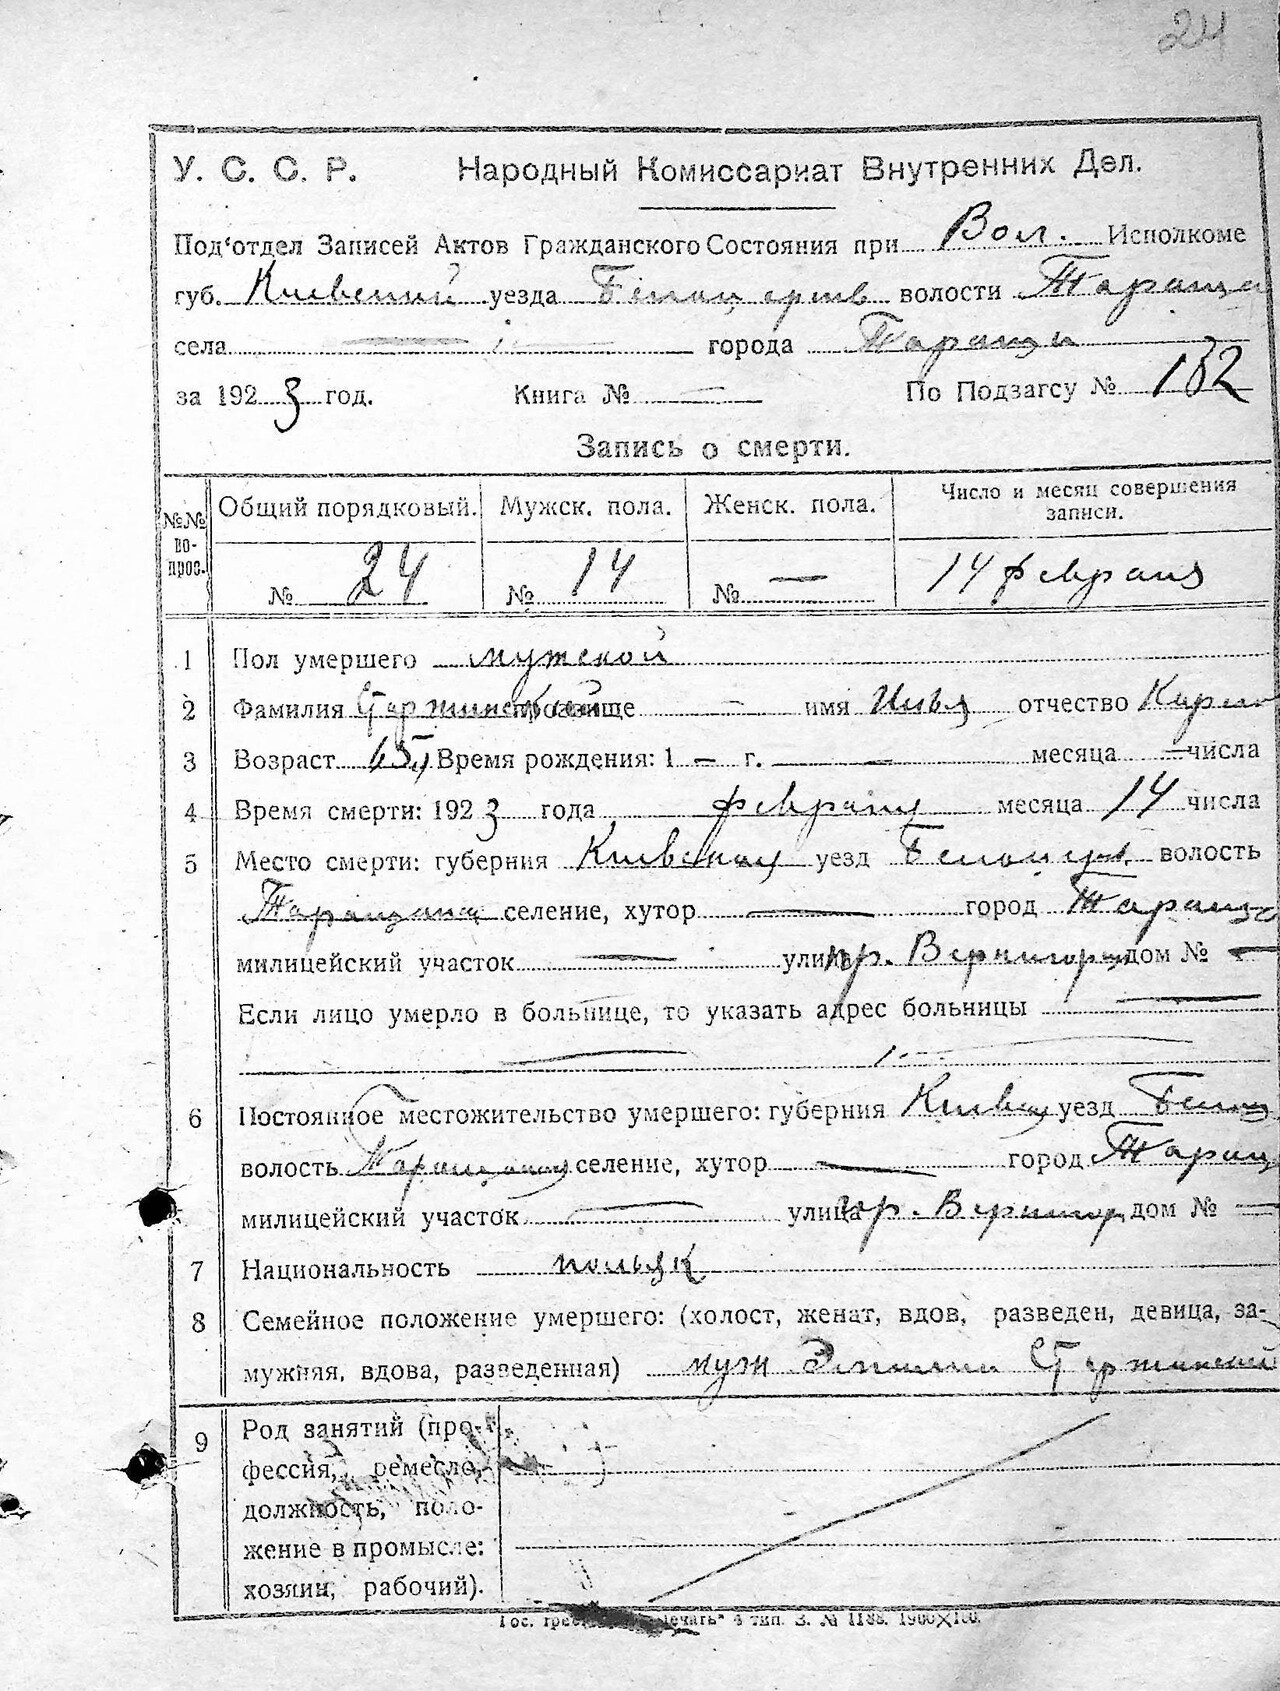 24
У. С. С. Р. Народный Комиссариат Внутренних Дел.
Под'отдел Записей Актов Гражданского Состояния при Вол. Исполкоме
губ. Киевский уезда Белоцерков волости Тараща
села — города Таращи
за 1923 год. Книга № — По Подзагсу № 132
Запись о смерти.
№№ вопрос. Общий порядковый. Мужск. пола. Женск. пола. Число и месяц совершения записи.
№ 24 № 14 № — 14 февраля
1 Пол умершего мужской
2 Фамилия Стржинский прозвище — имя Илья отчество
3 Возраст Время рождения: 1 — г. — месяца — числа
4 Время смерти: 1923 года февраля месяца 14 числа
5 Место смерти: губерния Киевская уезд Белоцерк. волость
Таращанская селение, хутор — город Тараща
милицейский участок — улица пр. дом № —
Если лицо умерло в больнице, то указать адрес больницы —
—
6 Постоянное местожительство умершего: губерния Киевская уезд Белоц
волость Таращанская селение, хутор — город Таращ
милицейский участок — улица пр. дом № —
7 Национальность польяк
8 Семейное положение умершего: (холост, женат, вдов, разведен, девица, за-
мужняя, вдова, разведенная) муж Эмилии Стржинской
9 Род занятий (про-
фессия, ремесло,
должность, поло-
жение в промысле:
хозяин, рабочий).
4 тип. З. № 1188. 1900×100.